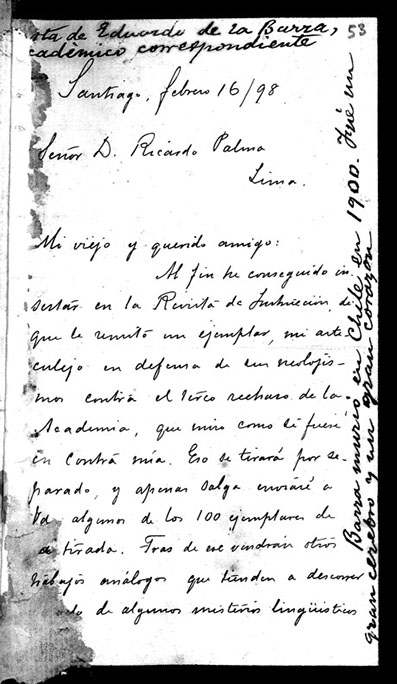 53
ota de Eduardo de la Barra,
cadémico correspondiente
Santiago, febrero 16/98
Señor D. Ricardo Palma
Lima.
Mi viejo y querido amigo:
Al fin he conseguido in
sertar en la Revista de Instrucción, de
que le remito un ejemplar, mi artí
culejo en defensa de sus neologis-
mos contra el terco rechazo de la
Academia, que miro como si fuese
en contra mía. Eso se tirará por se-
parado, y apenas salga enviaré a
Vd algunos de los 100 ejemplares de
la tirada. Tras de ese vendrán otros
trabajos análogos que tienden a descorrer
de algunos misterios lingüísticos
Barra murió en Chile en 1900. Fué un
gran cerebro y un gran corazón